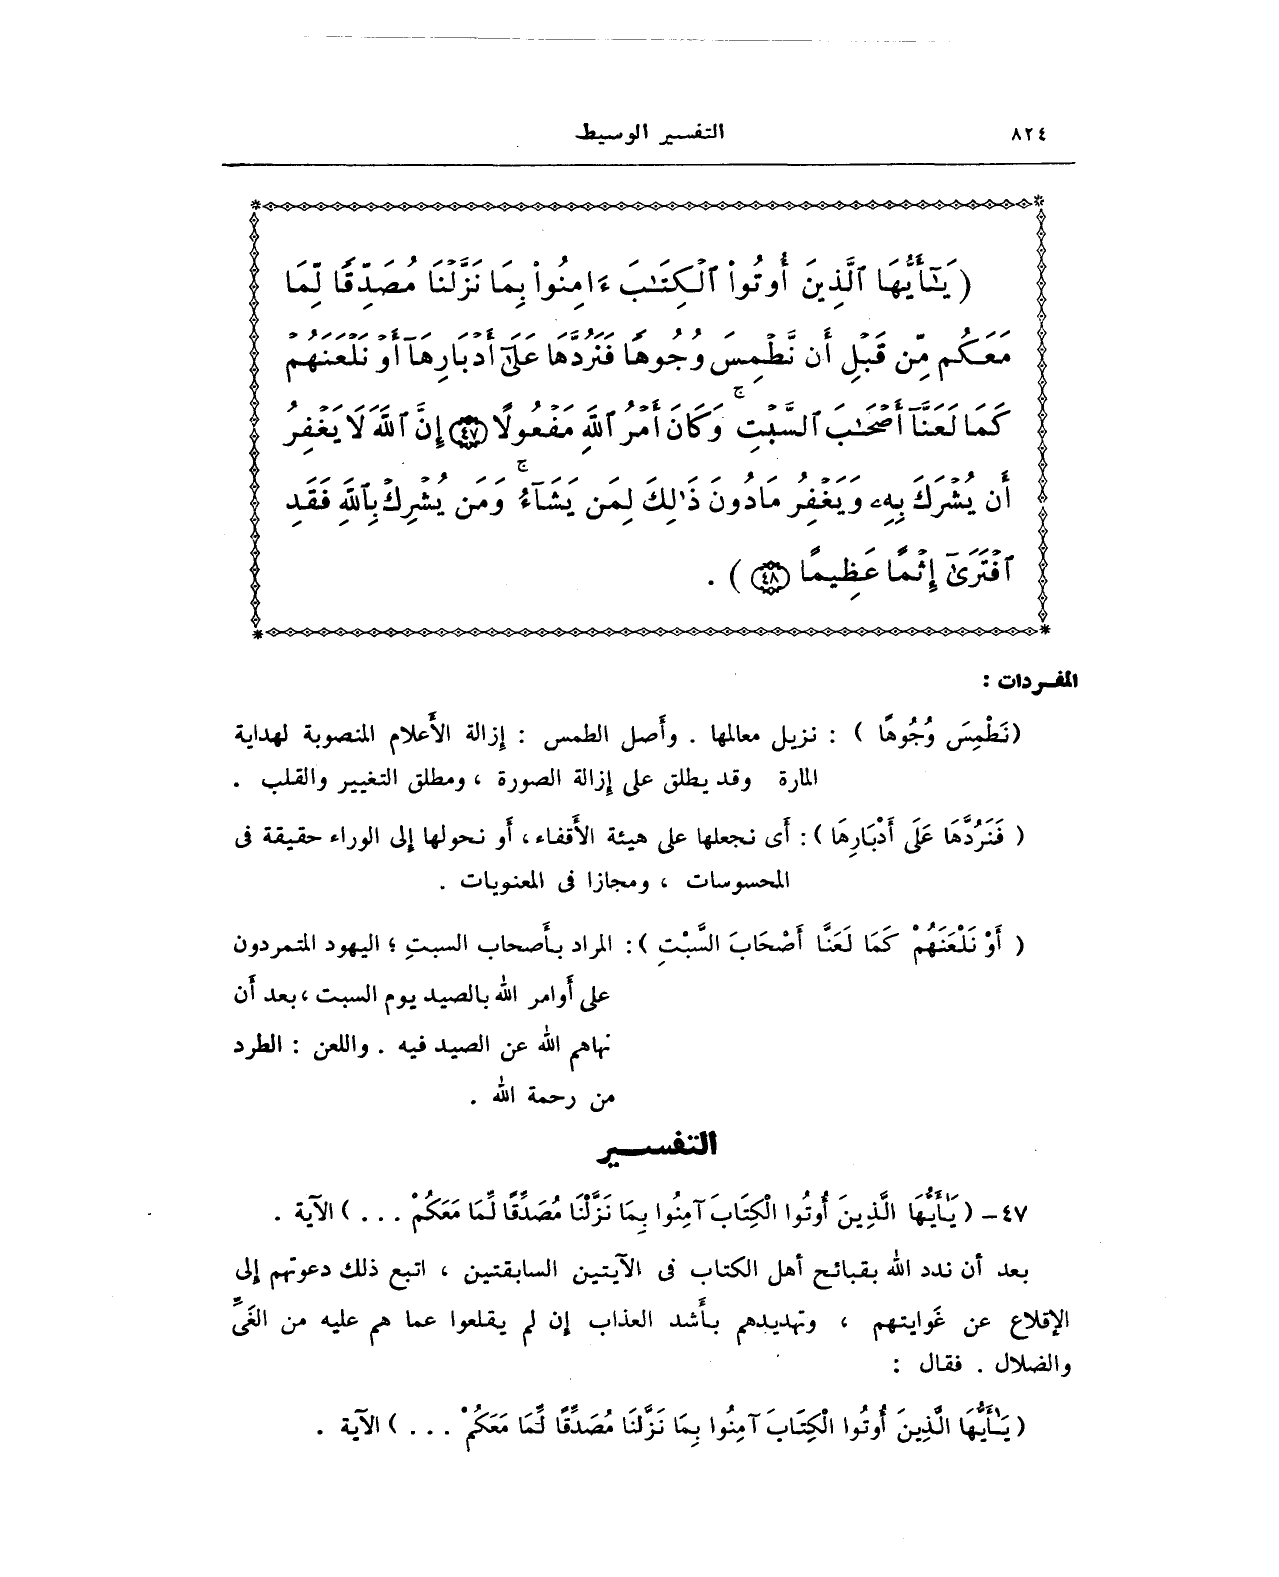 ٨٢٤ التفسير الوسيط
( يَـٰٓأَيُّهَا ٱلَّذِينَ أُوتُوا۟ ٱلْكِتَـٰبَ ءَامِنُوا۟ بِمَا نَزَّلْنَا مُصَدِّقًا لِّمَا
مَعَكُم مِّن قَبْلِ أَن نَّطْمِسَ وُجُوهًا فَنَرُدَّهَا عَلَىٰٓ أَدْبَارِهَآ أَوْ نَلْعَنَهُمْ
كَمَا لَعَنَّآ أَصْحَـٰبَ ٱلسَّبْتِ ۚ وَكَانَ أَمْرُ ٱللَّهِ مَفْعُولًا ﴿٤٧﴾ إِنَّ ٱللَّهَ لَا يَغْفِرُ
أَن يُشْرَكَ بِهِۦ وَيَغْفِرُ مَا دُونَ ذَٰلِكَ لِمَن يَشَآءُ ۚ وَمَن يُشْرِكْ بِٱللَّهِ فَقَدِ
ٱفْتَرَىٰٓ إِثْمًا عَظِيمًا ﴿٤٨﴾ ) .
المفـردات :
( نَطْمِسَ وُجُوهًا ) : نزيل معالمها . وأصل الطمس : إزالة الأعلام المنصوبة لهداية
المارة وقد يطلق على إزالة الصورة ، ومطلق التغيير والقلب .
( فَنَرُدَّهَا عَلَى أَدْبَارِهَا ) : أى نجعلها على هيئة الأقفاء، أو نحولها إلى الوراء حقيقة فى
المحسوسات ، ومجازا فى المعنويات .
( أَوْ نَلْعَنَهُمْ كَمَا لَعَنَّا أَصْحَابَ السَّبْتِ ) : المراد بأصحاب السبت ؛ اليهود المتمردون
على أوامر الله بالصيد يوم السبت ، بعد أن
نهاهم الله عن الصيد فيه . واللعن : الطرد
من رحمة الله .
التفســـير
٤٧ – ( يَـٰأَيُّهَا الَّذِينَ أُوتُوا الْكِتَابَ آمِنُوا بِمَا نَزَّلْنَا مُصَدِّقًا لِّمَا مَعَكُمْ ... ) الآية .
بعد أن ندد الله بقبائح أهل الكتاب فى الآيتين السابقتين ، اتبع ذلك دعوتهم إلى
الإقلاع عن غَوايتهم ، وتهديدهم بأشد العذاب إن لم يقلعوا عما هم عليه من الغَىِّ
والضلال . فقال :
( يَـٰأَيُّهَا الَّذِينَ أُوتُوا الْكِتَابَ آمِنُوا بِمَا نَزَّلْنَا مُصَدِّقًا لِّمَا مَعَكُمْ ... ) الآية .